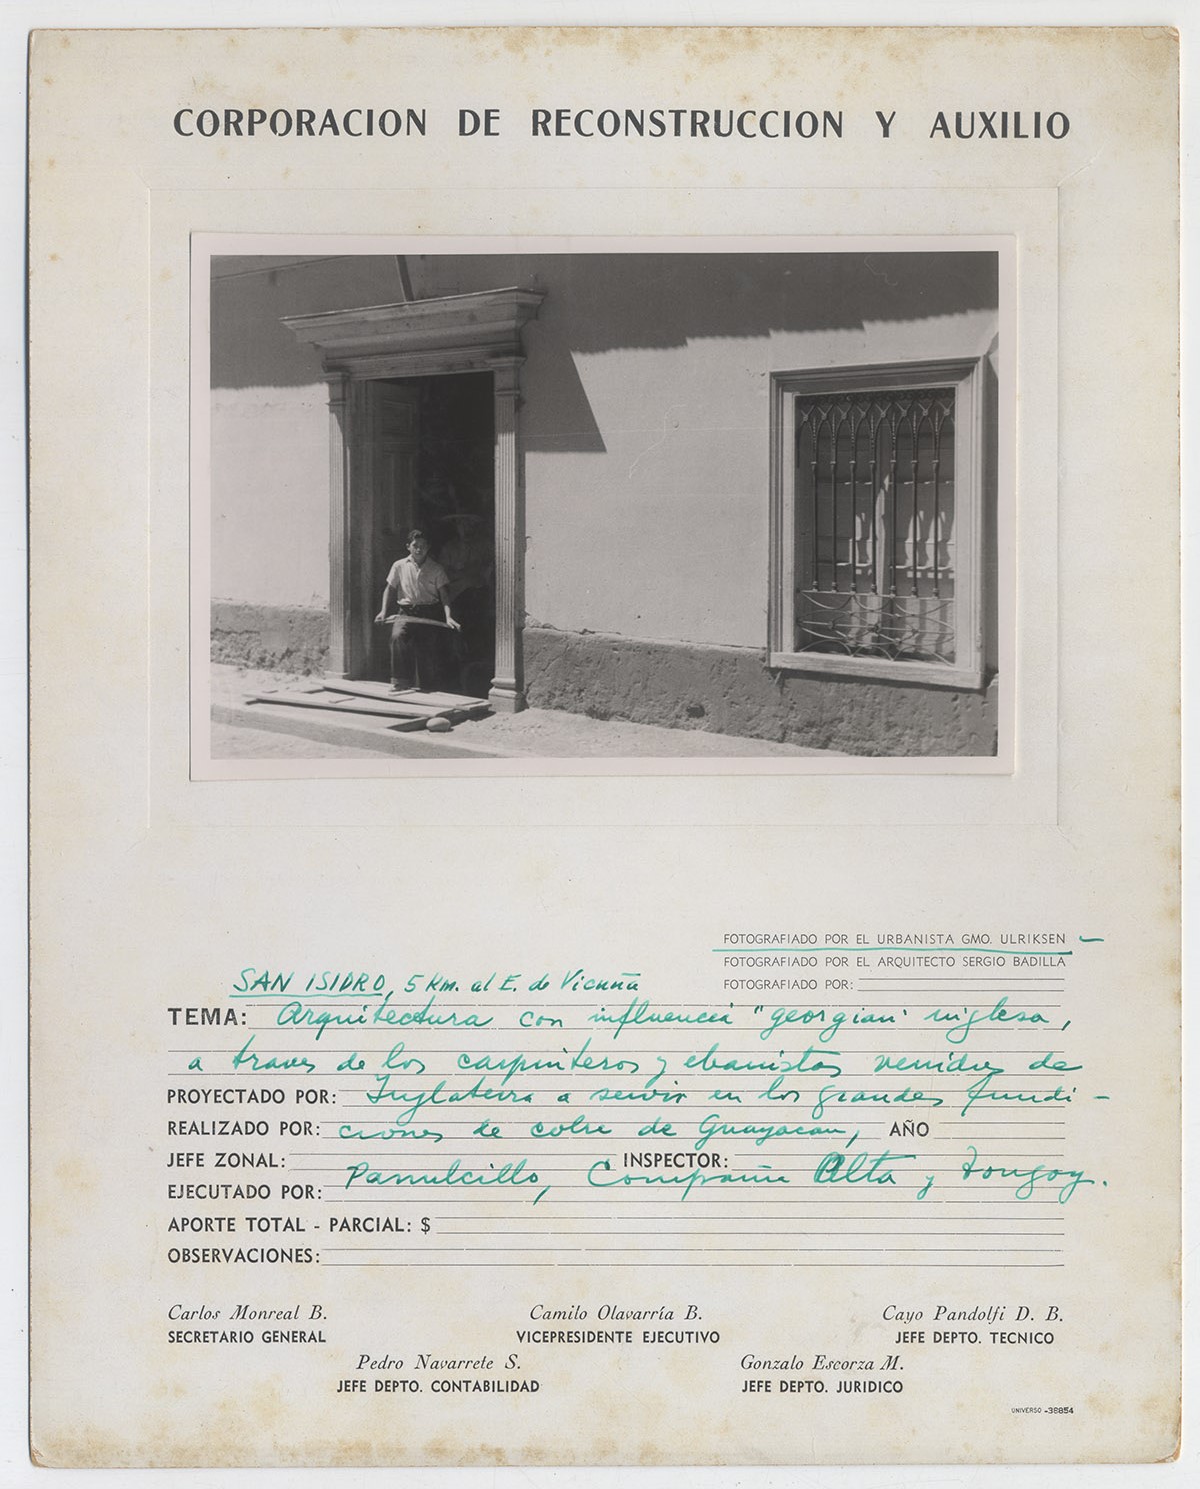 CORPORACION DE RECONSTRUCCION Y AUXILIO
FOTOGRAFIADO POR EL URBANISTA GMO. ULRIKSEN
FOTOGRAFIADO POR EL ARQUITECTO SERGIO BADILLA
FOTOGRAFIADO POR:
SAN ISIDRO, 5 Km. al E. de Vicuña
TEMA: Arquitectura con influencia "georgian" inglesa,
a traves de los carpinteros y ebanistas venidos de
PROYECTADO POR: Inglaterra a servir en los grandes fundi-
REALIZADO POR: ciones de cobre de Guayacan, AÑO
JEFE ZONAL: INSPECTOR:
EJECUTADO POR: Panulcillo, Compañia Alta y Tongoy.
APORTE TOTAL - PARCIAL: $
OBSERVACIONES:
Carlos Monreal B. Camilo Olavarría B. Cayo Pandolfi D. B.
SECRETARIO GENERAL VICEPRESIDENTE EJECUTIVO JEFE DEPTO. TECNICO
Pedro Navarrete S. Gonzalo Escorza M.
JEFE DEPTO. CONTABILIDAD JEFE DEPTO. JURIDICO
UNIVERSO -38854